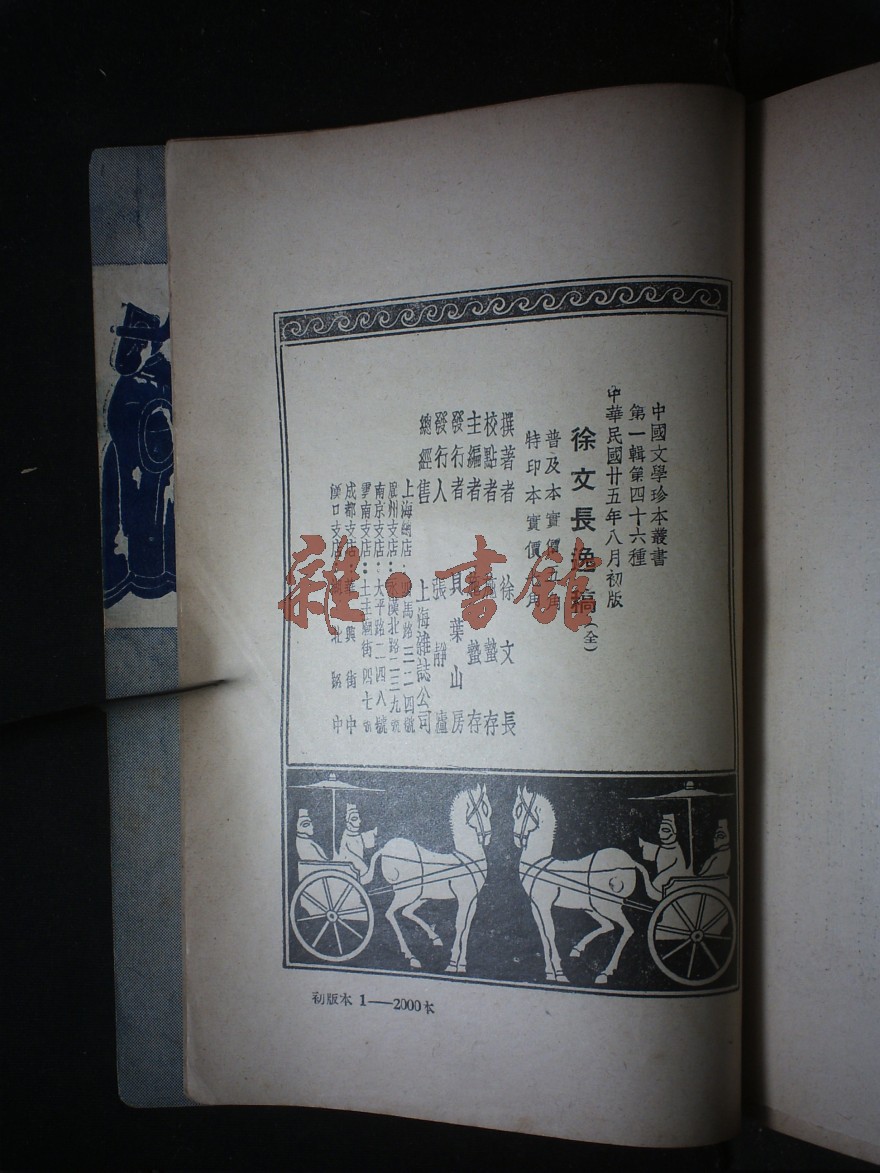 中國文學珍本叢書
第一輯第四十六種
中華民國廿五年八月初版
徐文長逸稿(全)
普及本實價 角
特印本實價 角
撰著者 徐文長
校點者 蟄存
主編者 施蟄存
發行者 貝葉山房
發行人 張靜廬
總經售 上海雜誌公司
上海總店 馬路三二四號
州支店 漢北路二三九號
南京支店:太平路二四八號
雲南支店:土主廟街四七號
成都支店 華興街中
口支店 北路中
初版本 1——2000本
雜·書館